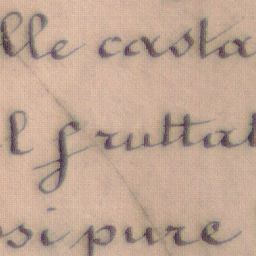 lle casta
l fruttat
si pure